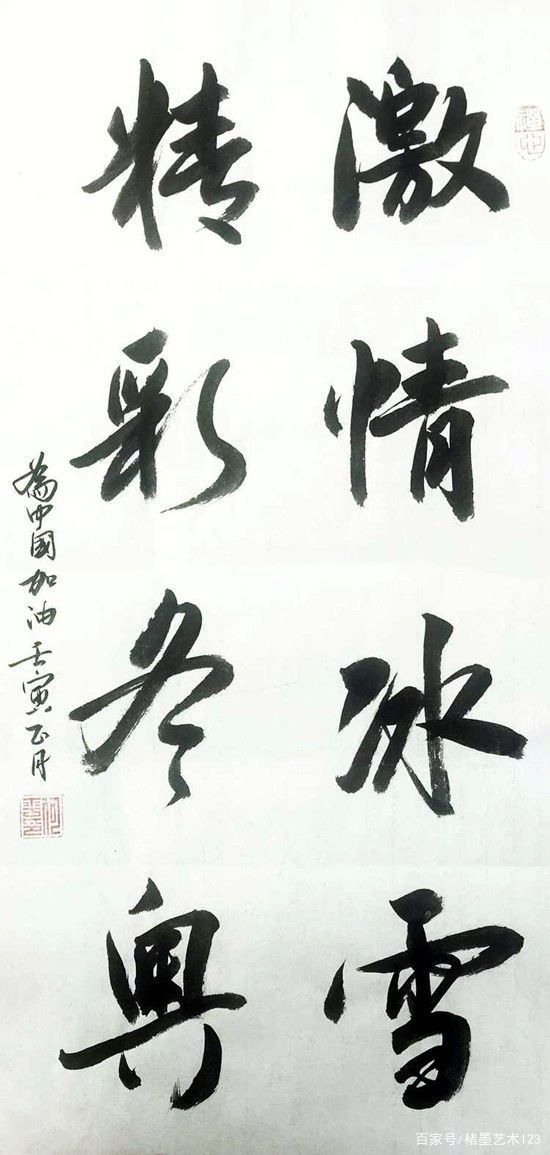 激情冰雪
精彩冬奥
為中國加油 壬寅正月
百家号/楮墨艺术123